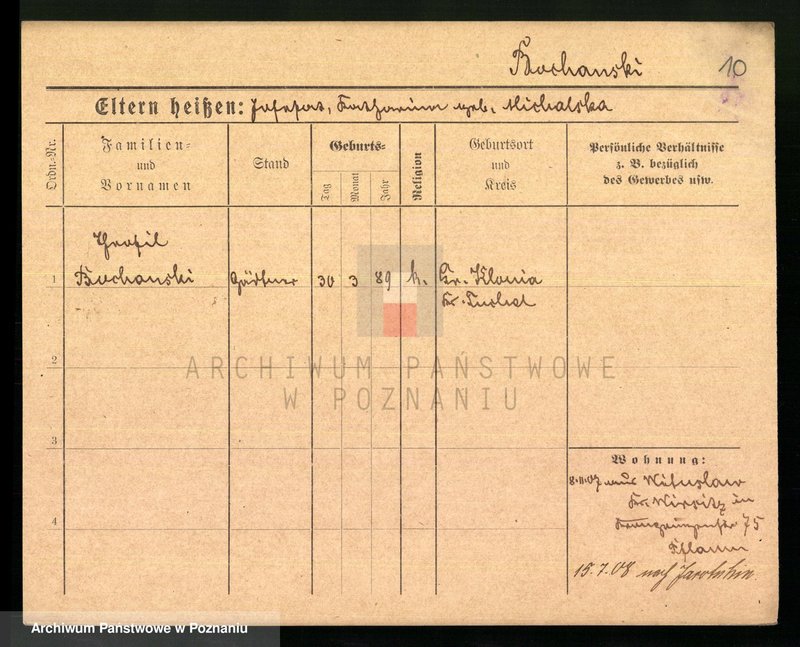 Bochanski 10
Eltern heißen: Josefat, Katharina geb. Michalska
Ordn.-Nr.
Familien- und Vornamen
Stand
Geburts-
Tag
Monat
Jahr
Religion
Geburtsort und Kreis
Persönliche Verhältnisse z. B. bezüglich des Gewerbes usw.
Theofil
1 Bochanski Gärtner 30 3 89 k. Gr. Klonia
Kr. Tuchel
2
ARCHIWUM PAŃSTWOWE
W POZNANIU
3
Wohnung:
8.11.07 aus Wituslaw
Kr. Wirsitz in
4 75
15.7.08 nach Jarotschin
Archiwum Państwowe w Poznaniu